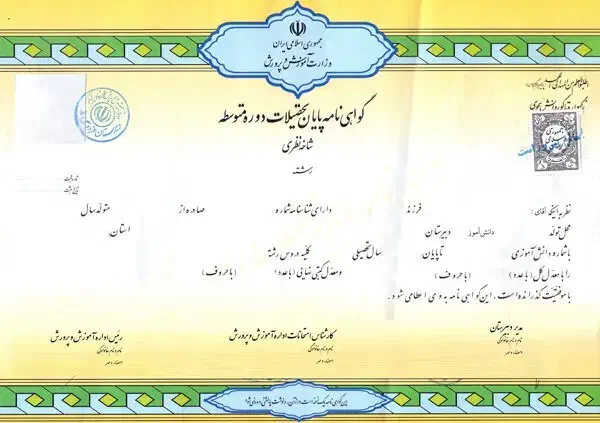 جمهوری اسلامی ایران
وزارت آموزش و پرورش
گواهی نامه پایان تحصیلات دوره متوسطه
شاخه نظری
رشته
شماره ثبت
تاریخ ثبت
نظر به اینکه آقای: فرزند دارای شناسنامه شماره صادره از متولد سال
محل تولد دانش آموز دبیرستان استان:
با شماره دانش آموزی تا پایان سال تحصیلی کلیه دروس رشته
را با معدل کل (با عدد) (با حروف) و معدل کتبی نهایی (با عدد) (با حروف)
با موفقیت گذرانده است، این گواهی نامه به وی اعطا می شود.
مدیر دبیرستان
نام و نام خانوادگی
امضاء و مهر
کارشناس امتحانات اداره آموزش و پرورش
نام و نام خانوادگی
امضاء و مهر
رئیس اداره آموزش و پرورش
نام و نام خانوادگی
امضاء و مهر